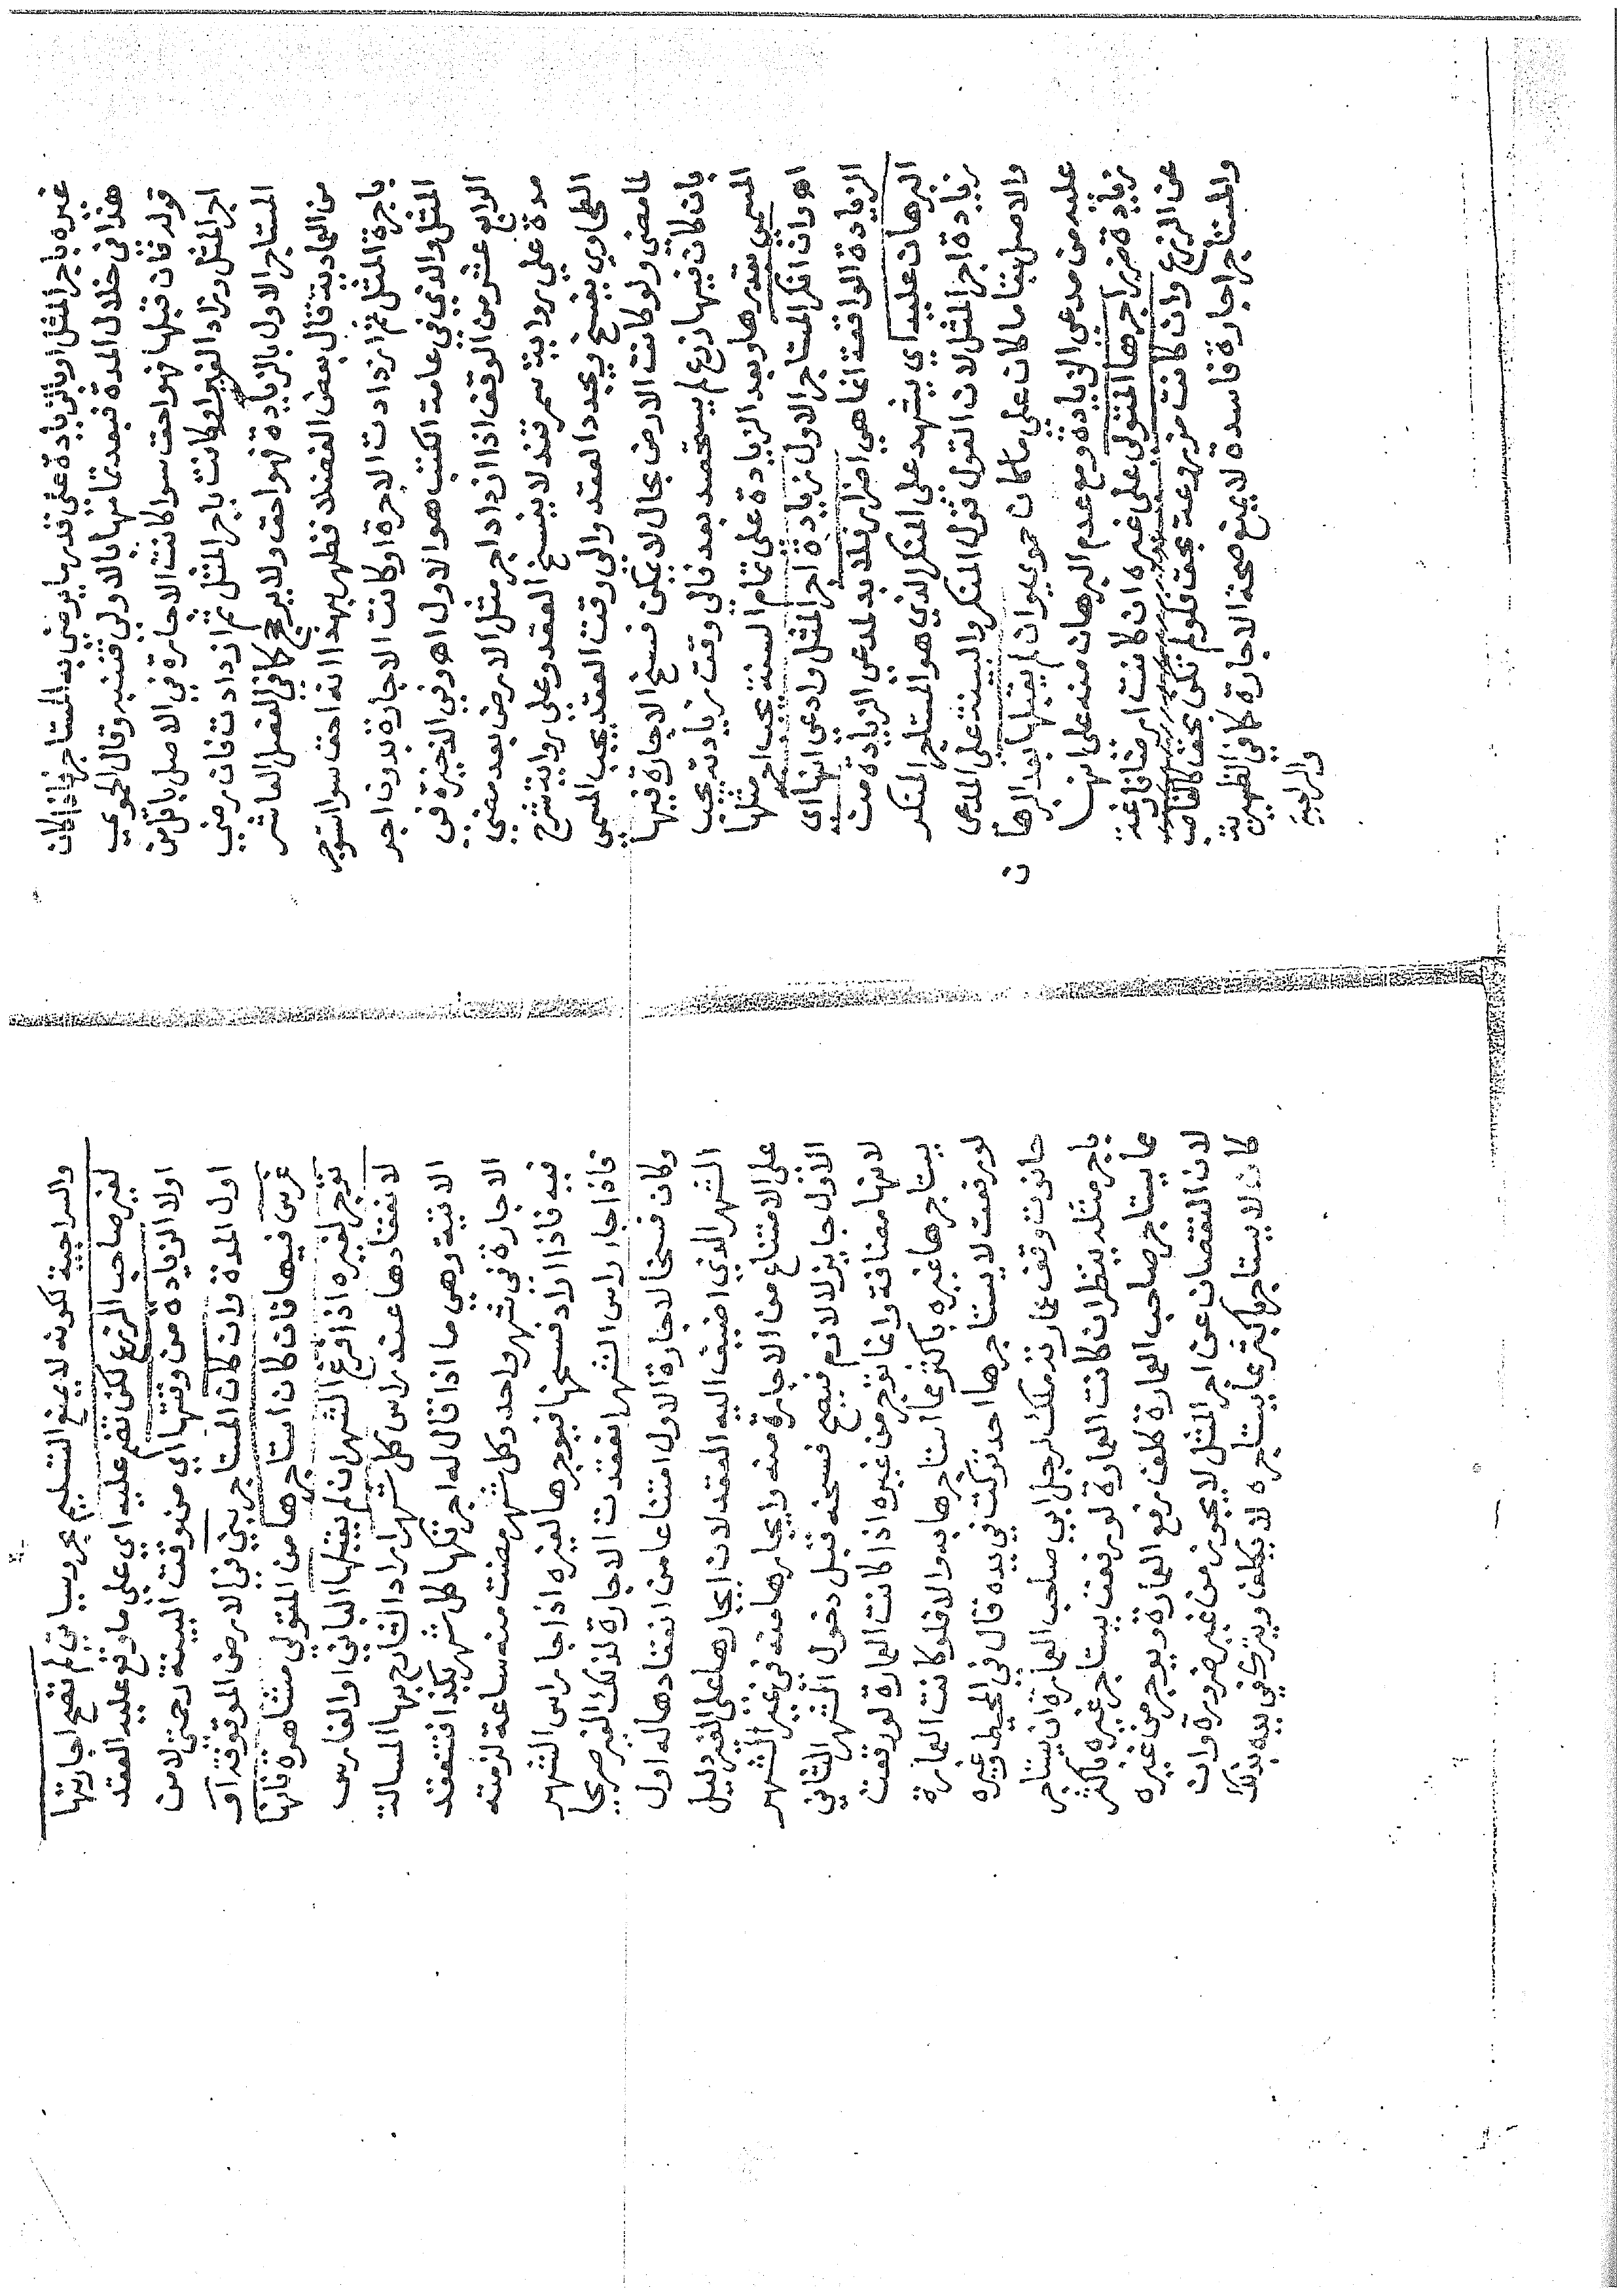 غيره باجر المثل اوبالزيادة علي قدر ما يرضي به المستاجر فاذا كان
هذا في خلال المدة فبعد تمامها بالاولي فتنبه وقال الحموي
قوله فان قبلها فهو احق سوا كانت الاجارة في الاصل باقل من
اجر المثل وزاد الغير اوكانت باجر المثل ثم ازدادت فان رضي
المستاجر الاول بالزيادة فهو احق ولا يوجر كما في الفصل العاشر
من العمادية قال بعض الفضلا فظهر بهذا انه احق سوا استوجر
باجرة المثل ثم ازدادت الاجرة اوكانت الاجارة بدون اجر
المثل والذي في عامة الكتب هو الاول اهـ وفي الذخيرة في
الرابع عشر من الوقف اذا ازداد اجر مثل الارض بعد مضي
مدة علي رواية سمرقند لا يفسخ العقد وعلي رواية شرح
الطحاوي يفسخ ويجدد العقد والي وقت العقد يجب المسمي
لما مضي ولو كانت الارض بحال لا يمكن فسخ الاجارة فيها
بان كان فيها زرع لم يستحصد بعد فالي وقت زيادته يجب
المسمي بقدرها وبعد الزيادة علي تمام السنة يجب اجر مثلها
اهـ وان انكر المستاجر الاول زيادة اجر المثل وادعي انها اي
الزيادة الواقعة انما هي اضرار فلا بد لمدعي الزيادة من
البرهان عليه اي يشهد علي المنكر الذي هو المستاجر المنكر
زيادة اجر المثل لان القول قول المنكر والبينة علي المدعي
والاصل بقا ما كان علي ما كان حموي وان لم يقبلها بعد البرها
ن
عليه من مدعي الزيادة ومع عدم البرهان منه علي انها
زيادة ضرر اجرها المتولي علي غيره ان كانت ارضا فارغة
عن الزرع وان كانت مزروعة بحق فلو لم تكن بحق كالغاصب
والمستاجر اجارة فاسدة لا يمنع صحة الاجارة كما في الظهيرية
والسراجية لكونه لا يمنع التسليم بحر وسياتي لم تصح اجارتها
لغير صاحب الزرع لكن تضم عليه اي علي ما وقع عليه العقد
اولا الزيادة من وقتها اي من وقت البينة رحمتي لا من
اول المدة وان كان المستاجر بني في الارض الموقوفة او
غرس فيها فان كان استاجرها من المتولي مشاهرة فانها
توجر لغيره اذا فرغ الشهر ان لم يقبلها الباني او الغارس
لانعقادها عند راس كل شهر اراد الشارح بها المسالة
الاتية وهي ما اذا قال له اجرتكها كل شهر بكذا فتنعقد
الاجارة في شهر واحد وكل شهر مضت منه ساعة لزمته
فيه فاذا اراد فسخها فيوجرها لغيره اذا جا راس الشهر
فاذا جا راس الشهر انعقدت الاجارة لذلك الغير صريحا
وكان فسخا لاجارة الاول امتناعا من انعقادها له اول
الشهر الذي اضيف اليه العقد لان ايجارها علي الغير دليل
علي الامتناع من الاجارة منه وايجارها منه في غير الشهر
الاول جايز لا لازم فيصح فسخه قبل دخول الشهر الثاني
لانها مضافة وانما توجر من غيره اذا كانت العمارة لو رفعت
يستاجرها غيره باكثر مما استاجرها به والا فلو كانت العمارة
لو رفعت لا يستاجرها احد تركت في يده قال في المحيط وغيره
حانوت وقف عمارته ملك لرجل ابي صاحب العمارة ان يستاجر
باجر مثله ينظر ان كانت العمارة لو رفعت يستاجر غيره باكثر
مما يستاجر صاحب العمارة كلف رفع العمارة ويوجر من غيره
لان النقصان عن اجر المثل لا يجوز من غير ضرورة وان
كان لا يستاجر باكثر مما يستاجره لا يكلف ويترك في يده بذلك